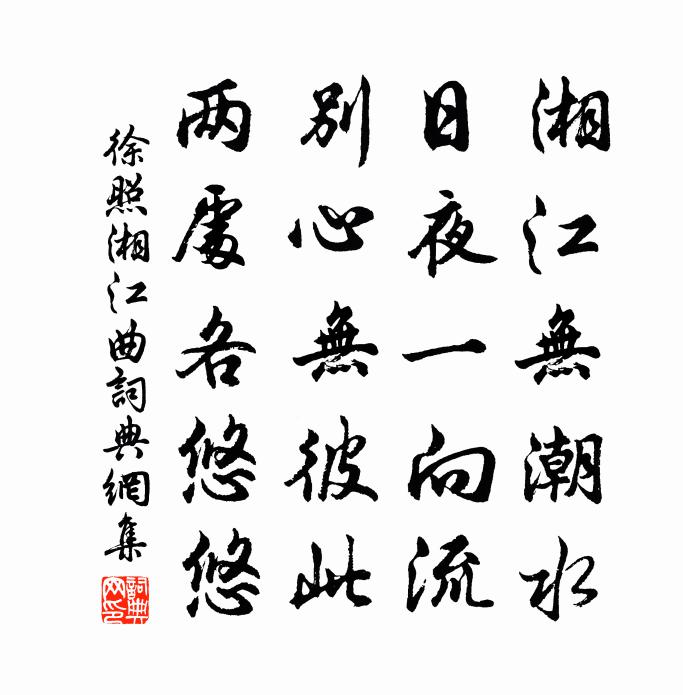 湘江無潮水
日夜一向流
別心無彼此
两處各悠悠
徐照湘江曲詞典網集
詞典
网印